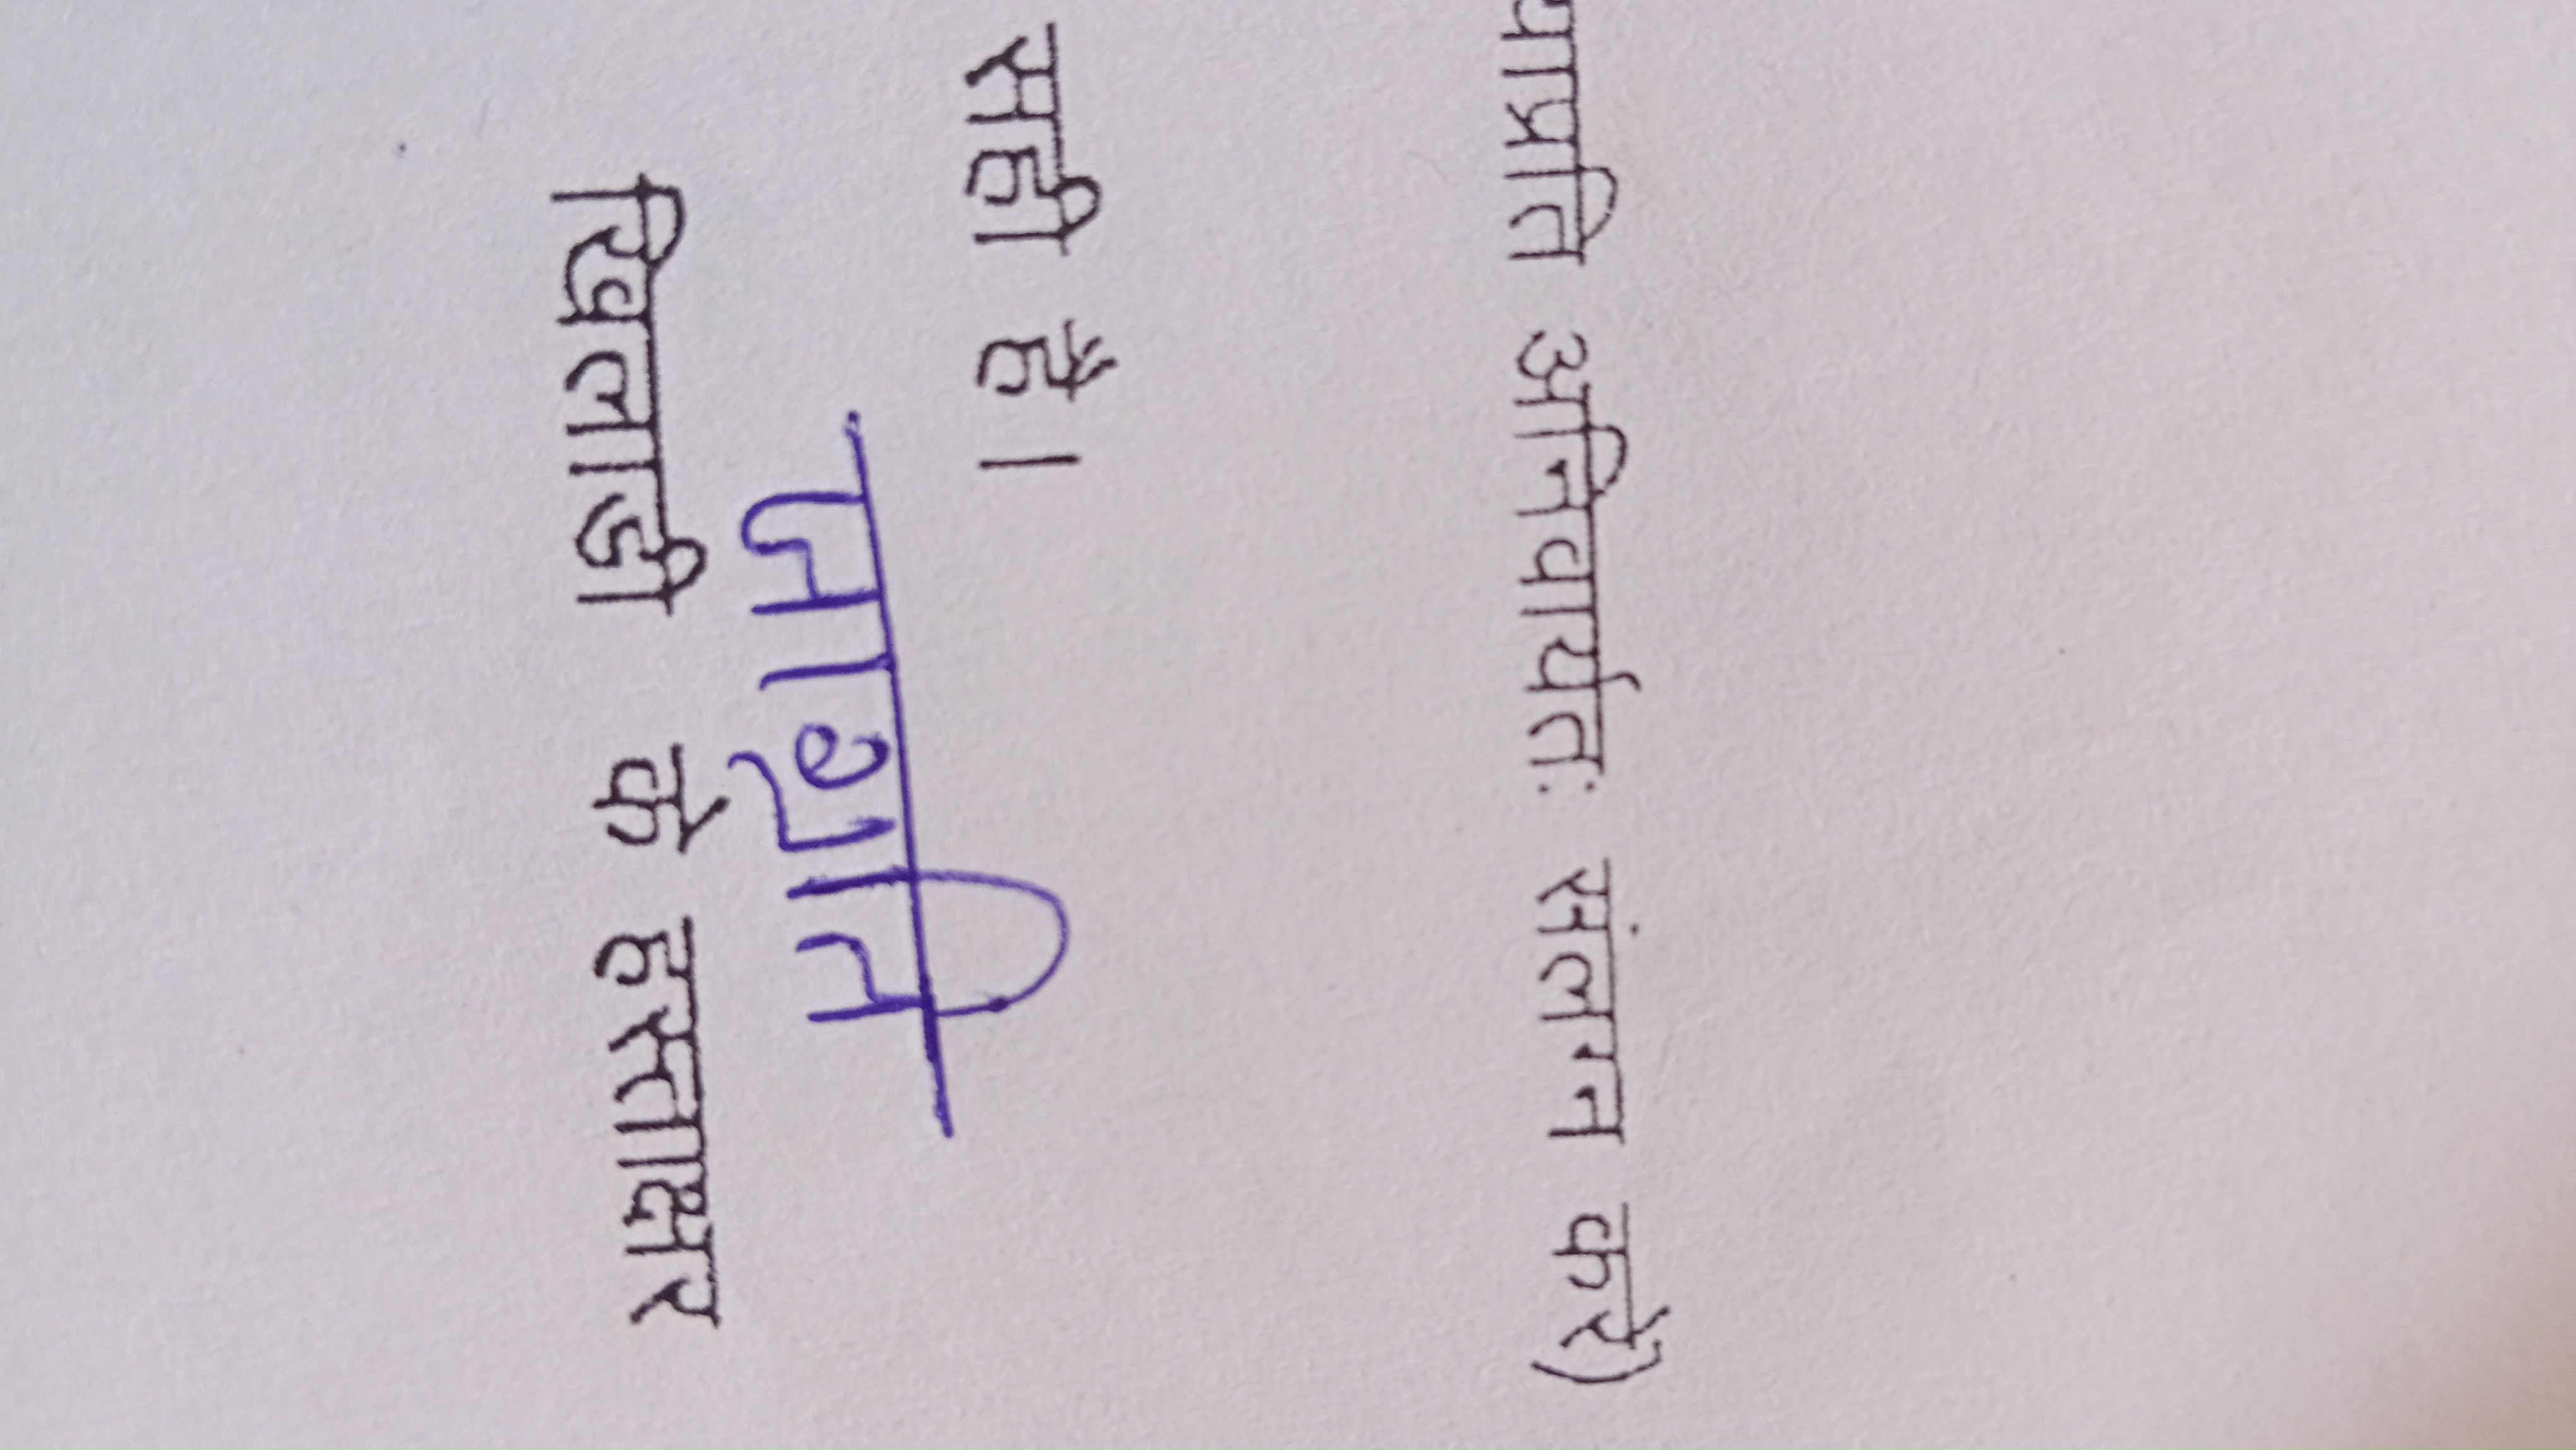 याप्रति अनिवार्यतः संलग्न करें)
सही है।
खिलाडी के हस्ताक्षर